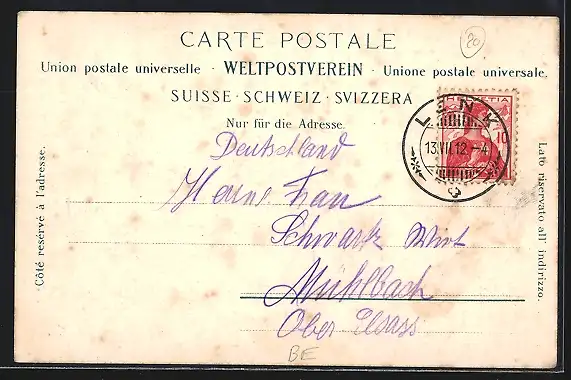 20
CARTE POSTALE
Union postale universelle · WELTPOSTVEREIN · Unione postale universale.
SUISSE · SCHWEIZ · SVIZZERA
Nur für die Adresse.
HELVETIA
LENK
13.VII.12.-4
Côté resérvé à l'adresse.
Lato riservato all' indirizzo.
Deutschland
Frau
Schwartz Wirt
Mühlbach
Ober Elsass
BE